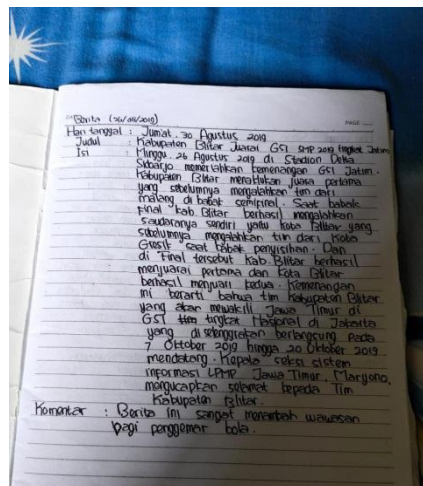 Berita (26/08/2019)
PAGE
Hari tanggal : Jum'at, 30 Agustus 2019
Judul : Kabupaten Blitar Juarai GSI SMP 2019 tingkat Jatim
Isi : Minggu, 26 Agustus 2019 di Stadion Delta
Sidoarjo memeriahkan kemenangan GSI Jatim.
Kabupaten Blitar menaklukan juara pertama
yang sebelumnya mengalahkan tim dari
malang di babak semipinal. Saat babak
Final kab. Blitar berhasil mengalahkan
saudaranya sendiri yaitu kota Blitar yang
sebelumnya mengalahkan tim dari kota
Gresik saat babak penyisihan. Dan
di Final tersebut Kab. Blitar berhasil
menjuarai pertama dan kota Blitar
berhasil menjuari kedua. Kemenangan
ini berarti bahwa tim kabupaten Blitar
yang akan mewakili Jawa Timur di
GSI tingkat Nasional di Jakarta
yang di selenggratan berlangsung pada
7 Oktober 2019 hingga 20 Oktober 2019
mendatang. Kepala seksi sistem
informasi LPMP Jawa Timur, Maryono,
mengucapkan selamat kepada Tim
Kabupaten Blitar.
Komentar : Berita ini sangat menambah wawasan
bagi penggemar bola.